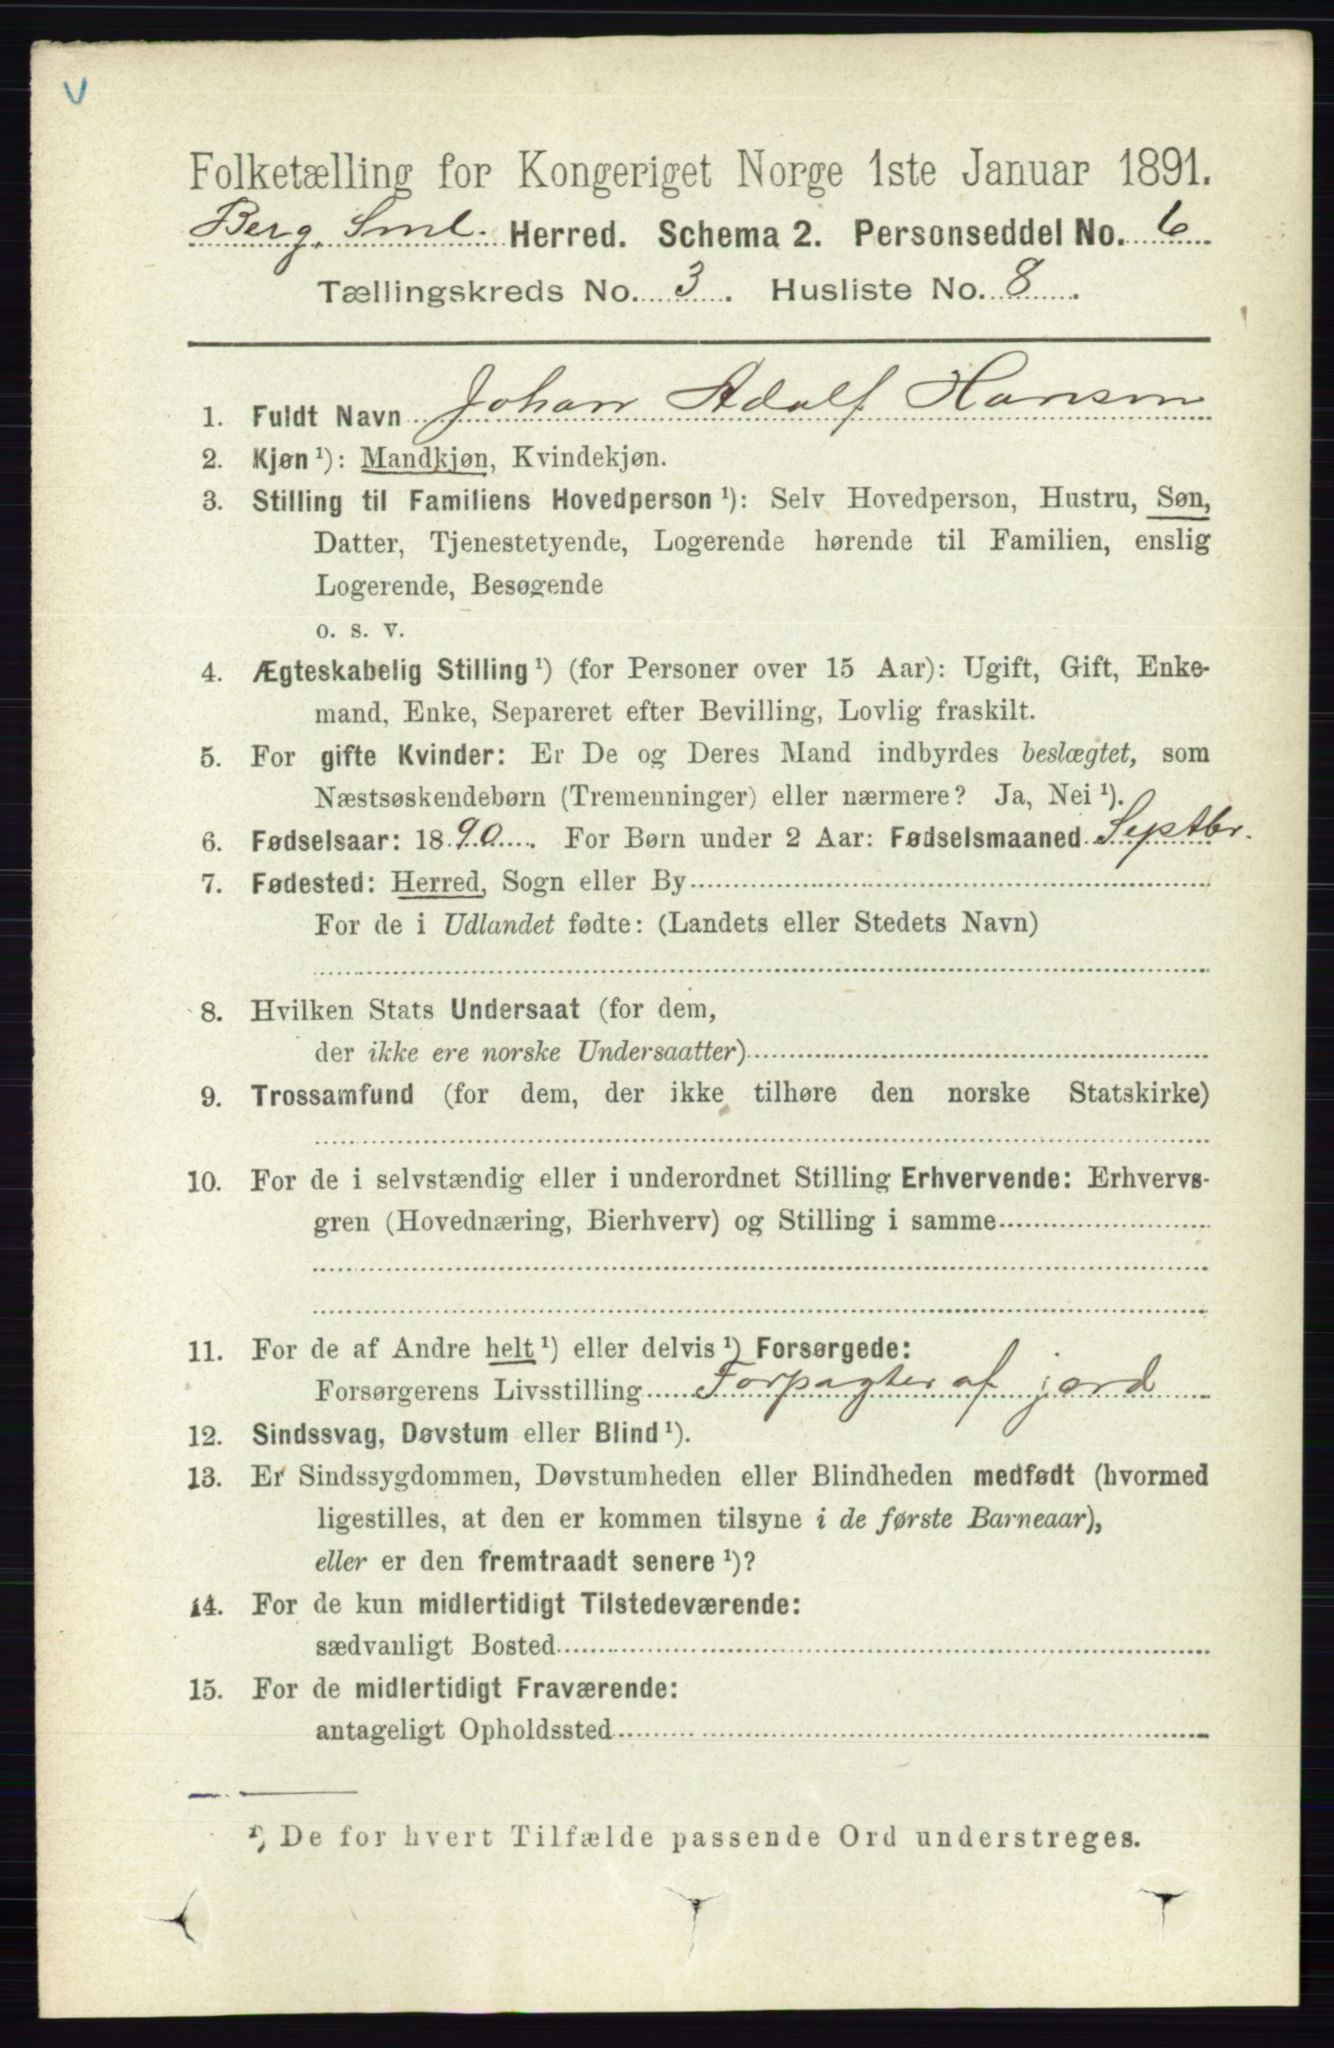 V
Folketælling for Kongeriget Norge 1ste Januar 1891.
Berg, Sml. Herred. Schema 2. Personseddel No. 6
Tællingskreds No. 3. Husliste No. 8.
1. Fuldt Navn Johan Adolf Hansen
2. Kjøn ¹): Mandkjøn, Kvindekjøn.
3. Stilling til Familiens Hovedperson ¹): Selv Hovedperson, Hustru, Søn,
Datter, Tjenestetyende, Logerende hørende til Familien, enslig
Logerende, Besøgende
o. s. v.
4. Ægteskabelig Stilling ¹) (for Personer over 15 Aar): Ugift, Gift, Enke-
mand, Enke, Separeret efter Bevilling, Lovlig fraskilt.
5. For gifte Kvinder: Er De og Deres Mand indbyrdes beslægtet, som
Næstsøskendebørn (Tremenninger) eller nærmere? Ja, Nei ¹).
6. Fødselsaar: 1890. For Børn under 2 Aar: Fødselsmaaned Septbr.
7. Fødested: Herred, Sogn eller By
For de i Udlandet fødte: (Landets eller Stedets Navn)
8. Hvilken Stats Undersaat (for dem,
der ikke ere norske Undersaatter)
9. Trossamfund (for dem, der ikke tilhøre den norske Statskirke)
10. For de i selvstændig eller i underordnet Stilling Erhvervende: Erhvervs-
gren (Hovednæring, Bierhverv) og Stilling i samme
11. For de af Andre helt ¹) eller delvis ¹) Forsørgede:
Forsørgerens Livsstilling Forpagter af jord
12. Sindssvag, Døvstum eller Blind ¹).
13. Er Sindssygdommen, Døvstumheden eller Blindheden medfødt (hvormed
ligestilles, at den er kommen tilsyne i de første Barneaar),
eller er den fremtraadt senere ¹)?
14. For de kun midlertidigt Tilstedeværende:
sædvanligt Bosted
15. For de midlertidigt Fraværende:
antageligt Opholdssted
¹) De for hvert Tilfælde passende Ord understreges.